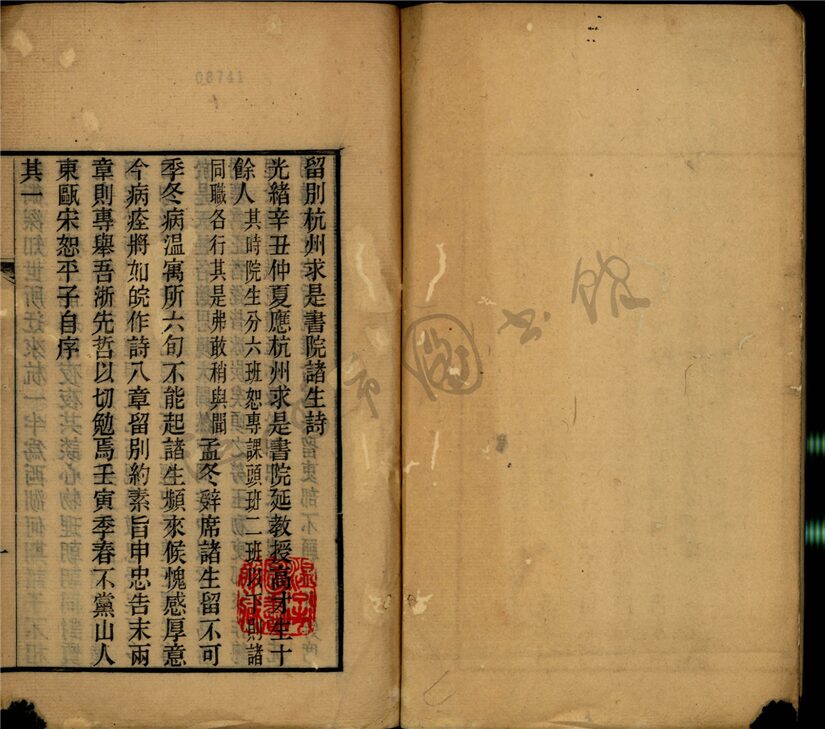 08741
留別杭州求是書院諸生詩
光緒辛丑仲夏應杭州求是書院延教授高才生十
餘人其時院生分六班恕專課頭班二班以下則諸
同職各行其是弗敢稍與聞孟冬辭席諸生留不可
季冬病溫寓所六旬不能起諸生頻來候愧感厚意
今病痊將如皖作詩八章留別約素旨申忠告末兩
章則專舉吾浙先哲以切勉焉壬寅季春不黨山人
東甌宋恕平子自序
其一
一